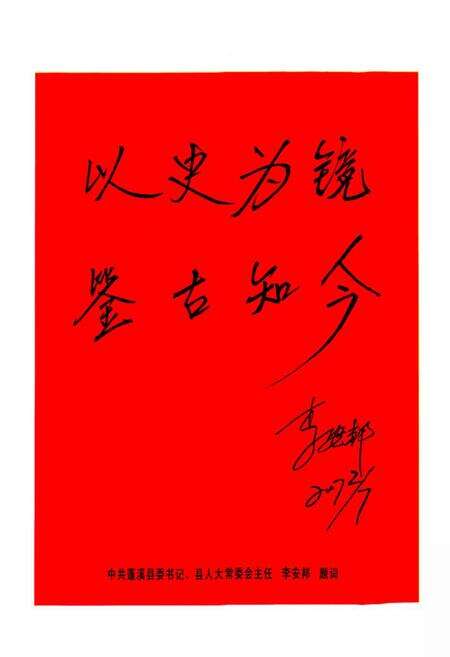 以史为镜
鉴古知今
李安邦
中共蓬溪县委书记、县人大常委会主任 李安邦 题词